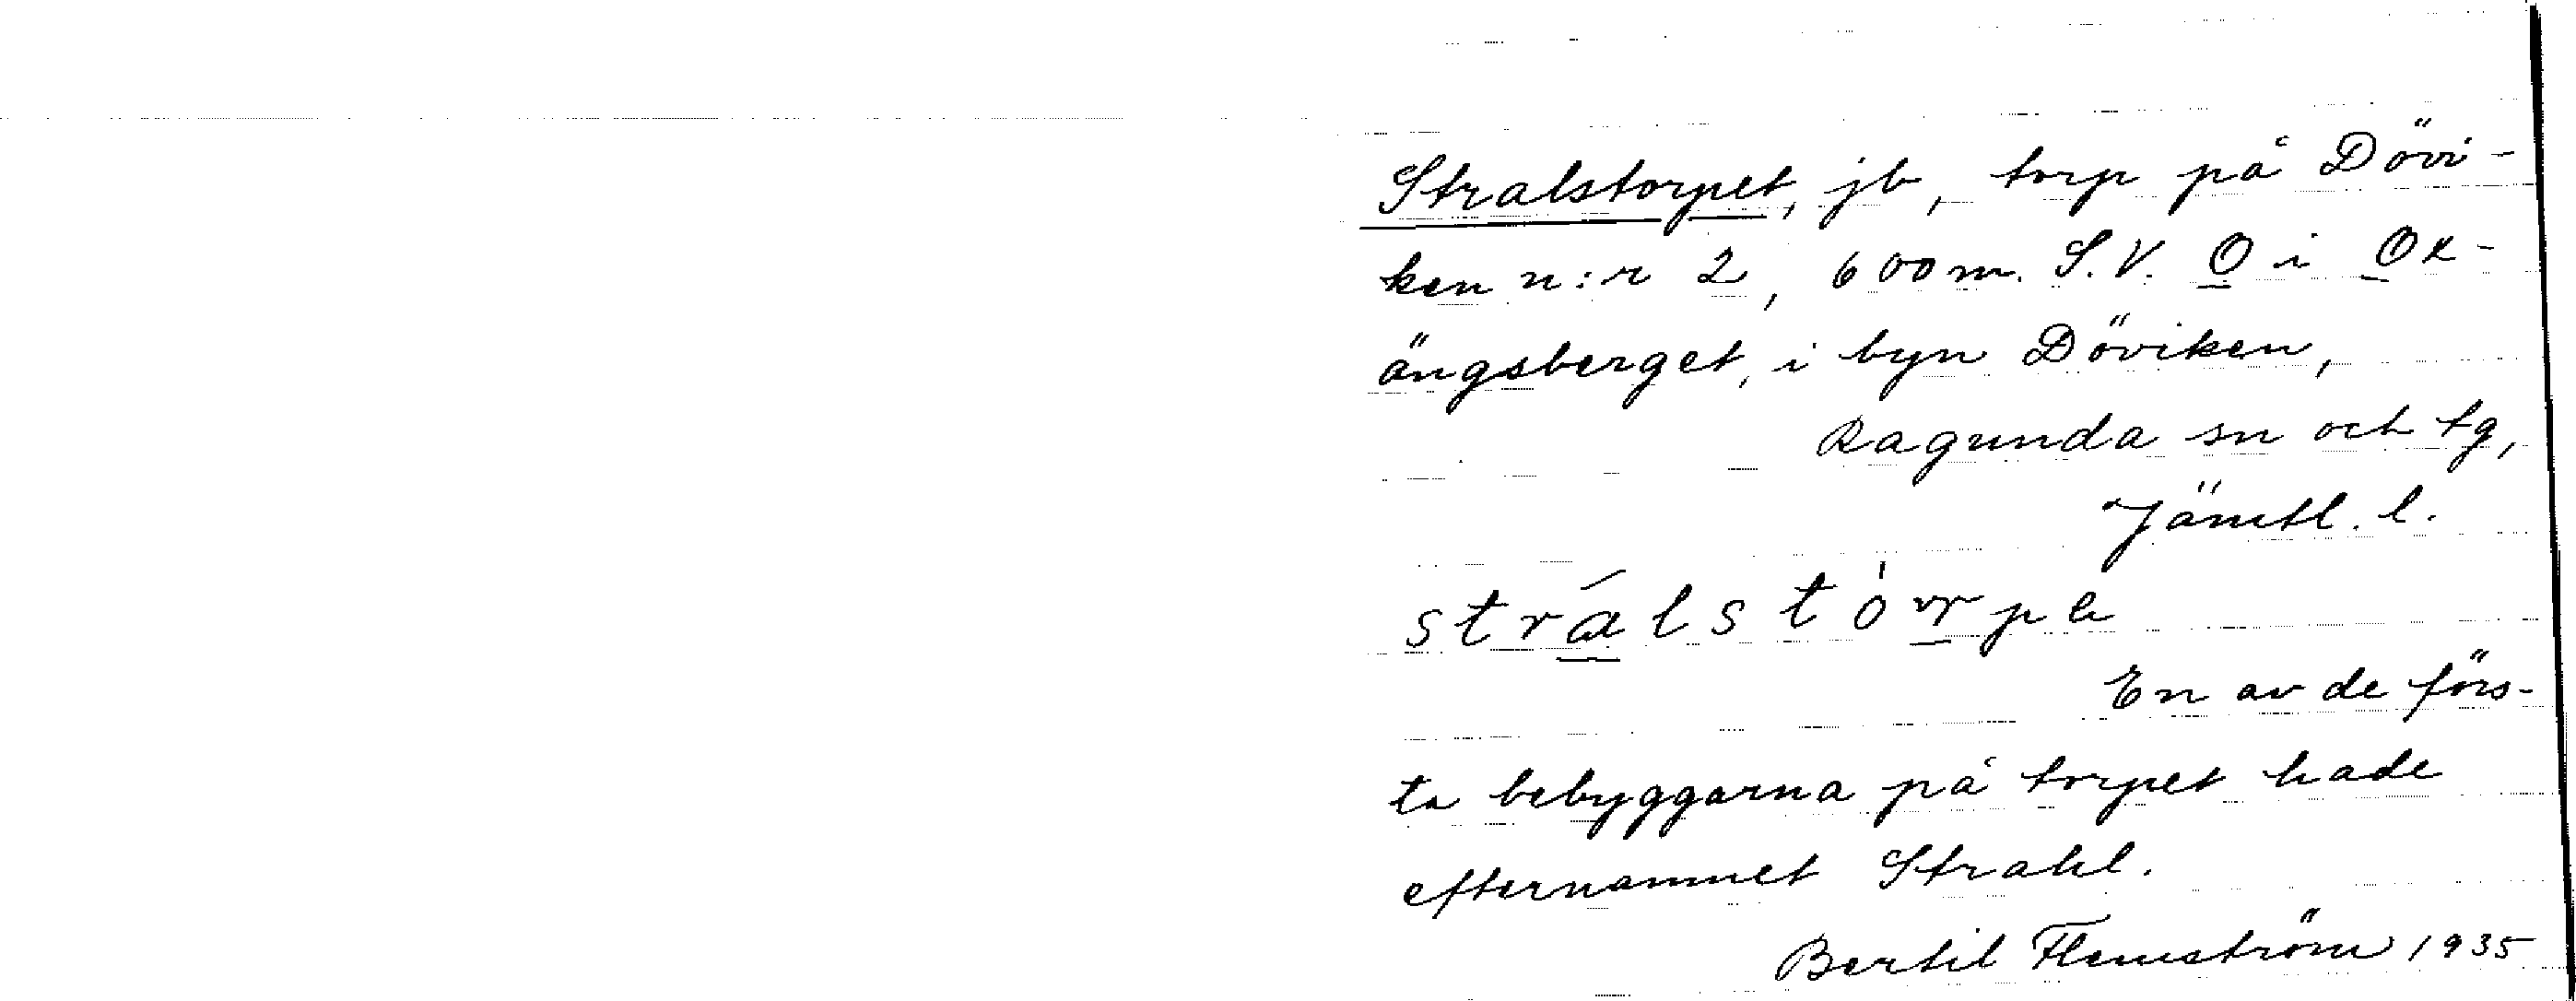 Stralstorpet, jb, torp på Dövi-
ken n:r 2, 600 m. S.V. O i Ox-
ängsberget, i byn Döviken,
Ragunda sn och tg,
Jämtl. l.
strálstòrpe
En av de förs-
ta bebyggarna på torpet hade
efternamnet Strahl.
Bertil Flemström 1935